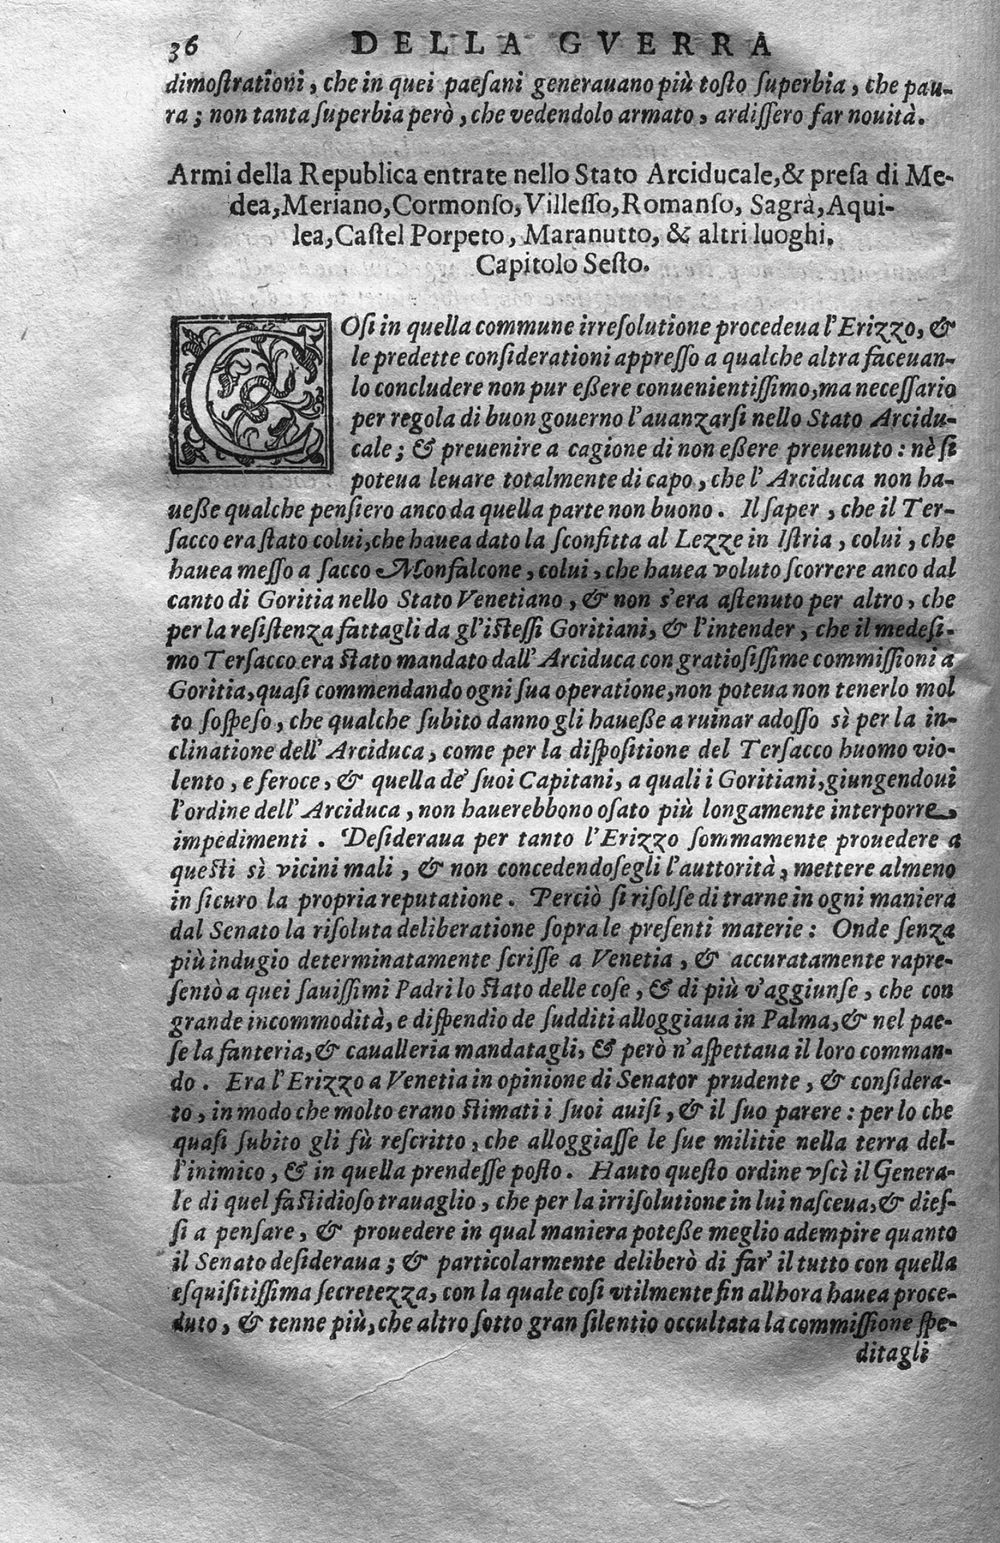 36 DELLA GVERRA
dimoſtrationi, che in quei paeſani generauano più toſto ſuperbia, che pau-
ra; non tanta ſuperbia però, che vedendolo armato, ardiſſero far nouità.
Armi della Republica entrate nello Stato Arciducale,& preſa di Me-
dea,Meriano,Cormonſo,Villeſſo,Romanſo, Sagrà,Aqui-
lea,Caſtel Porpeto, Maranutto, & altri luoghi.
Capitolo Seſto.
COſi in quella commune irreſolutione procedeua l'Erizzo, &
le predette conſiderationi appreſſo a qualche altra faceuan-
lo concludere non pur eßere conuenientiſſimo,ma neceſſario
per regola di buon gouerno l'auanzarſi nello Stato Arcidu-
cale; & preuenire a cagione di non eßere preuenuto: nè ſi
poteua leuare totalmente di capo, che l'Arciduca non ha-
ueße qualche penſiero anco da quella parte non buono. Il ſaper, che il Ter-
ſacco era ſtato colui,che hauea dato la ſconfitta al Lezze in Iſtria, colui, che
hauea meſſo a ſacco Monfalcone, colui, che hauea voluto ſcorrere anco dal
canto di Goritia nello Stato Venetiano, & non s'era aſtenuto per altro, che
per la reſiſtenza fattagli da gl'iſteſſi Goritiani, & l'intender, che il medeſi-
mo Terſacco era ſtato mandato dall'Arciduca con gratioſiſſime commiſſioni a
Goritia,quaſi commendando ogni ſua operatione,non poteua non tenerlo mol
to ſoſpeſo, che qualche ſubito danno gli haueße a ruinar adoſſo sì per la in-
clinatione dell'Arciduca, come per la diſpoſitione del Terſacco huomo vio-
lento, e feroce, & quella de' ſuoi Capitani, a quali i Goritiani,giungendoui
l'ordine dell'Arciduca, non hauerebbono oſato più longamente interporre,
impedimenti. Deſideraua per tanto l'Erizzo ſommamente prouedere a
queſti sì vicini mali, & non concedendoſegli l'auttorità, mettere almeno
in ſicuro la propria reputatione. Perciò ſi riſolſe di trarne in ogni maniera
dal Senato la riſoluta deliberatione ſopra le preſenti materie: Onde ſenza
più indugio determinatamente ſcriſſe a Venetia, & accuratamente rapre-
ſentò a quei ſauiſſimi Padri lo ſtato delle coſe, & di più v'aggiunſe, che con
grande incommodità, e diſpendio de ſudditi alloggiaua in Palma,& nel pae-
ſe la fanteria,& caualleria mandatagli, & però n'aſpettaua il loro comman-
do. Era l'Erizzo a Venetia in opinione di Senator prudente, & conſidera-
to, in modo che molto erano ſtimati i ſuoi auiſi, & il ſuo parere: per lo che
quaſi ſubito gli fù reſcritto, che alloggiaſſe le ſue militie nella terra del-
l'inimico, & in quella prendeſſe poſto. Hauto queſto ordine vſcì il Genera-
le di quel faſtidioſo trauaglio, che per la irriſolutione in lui naſceua,& dieſ-
ſi a penſare, & prouedere in qual maniera poteße meglio adempire quanto
il Senato deſideraua; & particolarmente deliberò di far' il tutto con quella
eſquiſitiſſima ſecretezza, con la quale coſi vtilmente fin allhora hauea proce-
duto, & tenne più,che altro ſotto gran ſilentio occultata la commiſſione ſpe-
ditagli